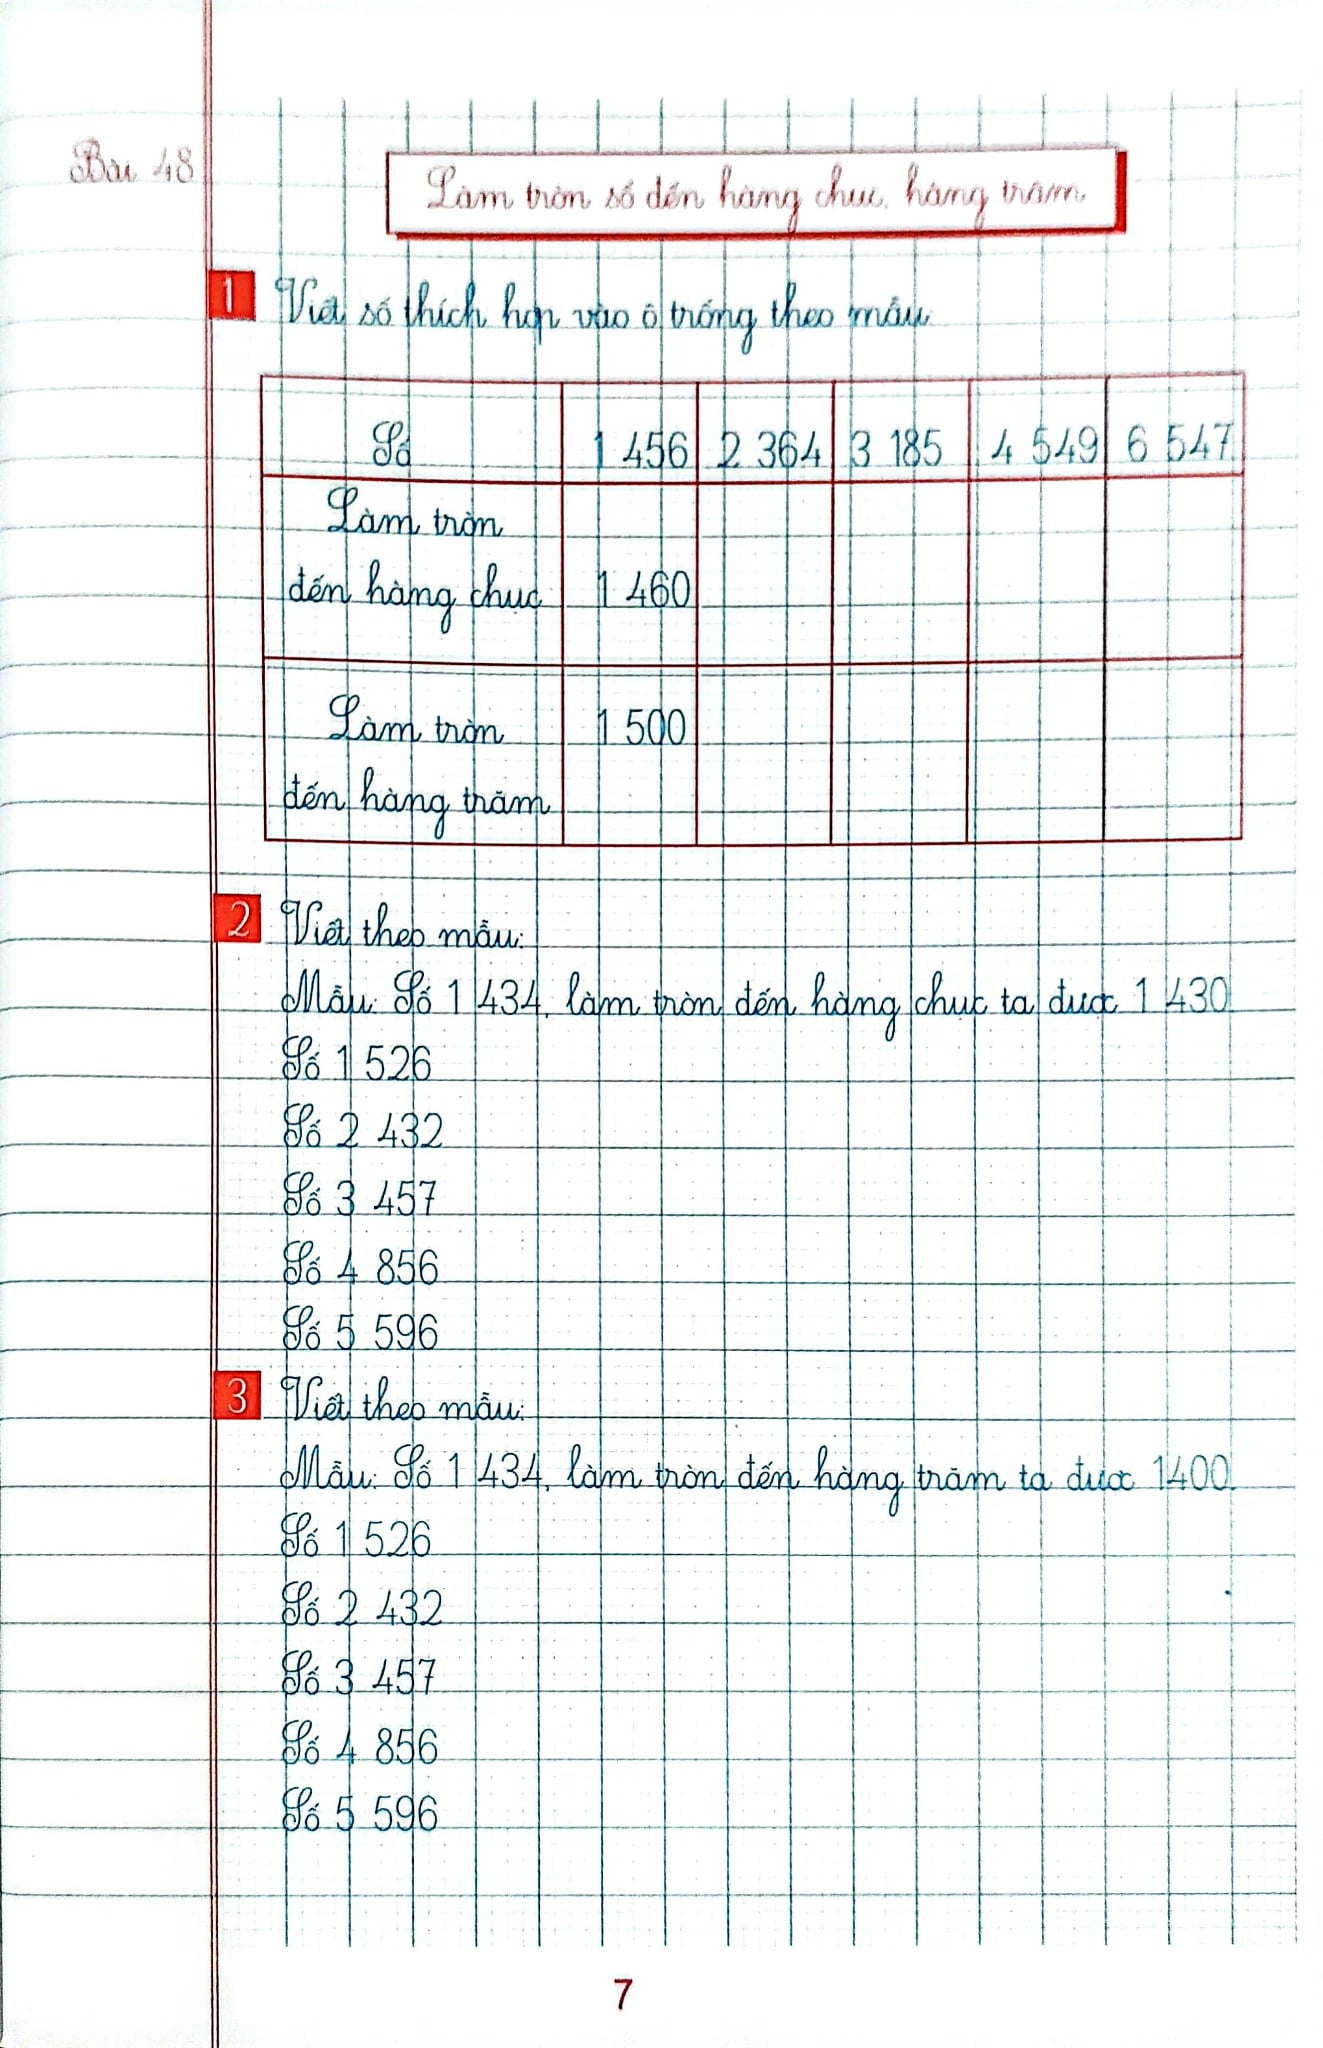 Bài 48
Làm tròn số đến hàng chục, hàng trăm
1 Viết số thích hợp vào ô trống theo mẫu
Số 1 456 2 364 3 185 4 549 6 547
Làm tròn
đến hàng chục 1 460
Làm tròn 1 500
đến hàng trăm
2 Viết theo mẫu:
Mẫu: Số 1 434, làm tròn đến hàng chục ta được 1 430.
Số 1 526
Số 2 432
Số 3 457
Số 4 856
Số 5 596
3 Viết theo mẫu:
Mẫu: Số 1 434, làm tròn đến hàng trăm ta được 1400.
Số 1 526
Số 2 432
Số 3 457
Số 4 856
Số 5 596
7